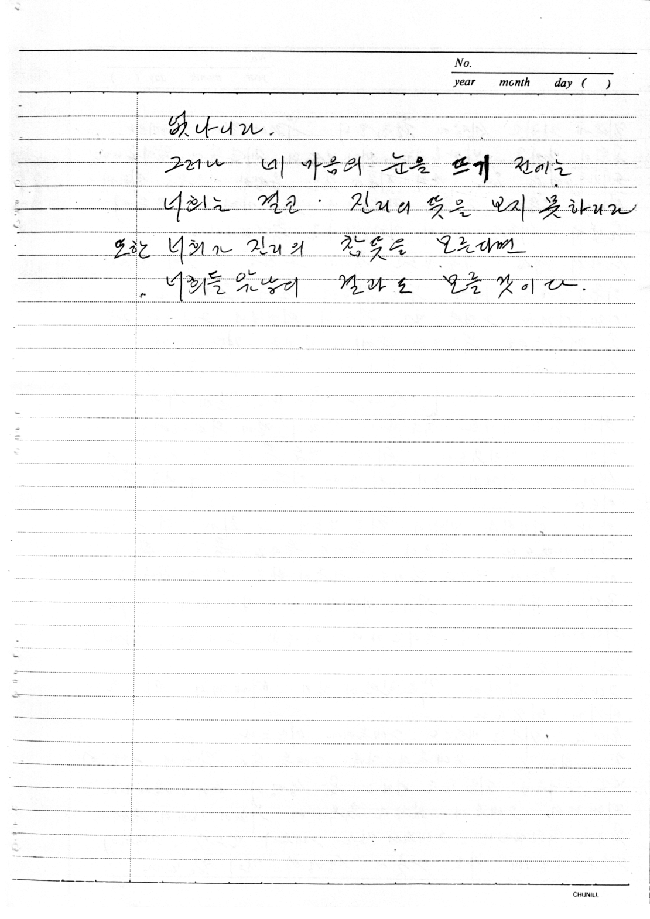 No.
year month day ( )
없나니라.
그러나 네 마음의 눈을 뜨기 전에는
너희는 결코 진리의 뜻을 보지 못하리라
또한 너희가 진리의 참뜻을 모른다면
너희들 결과도 모를 것이다.
CHUNILL